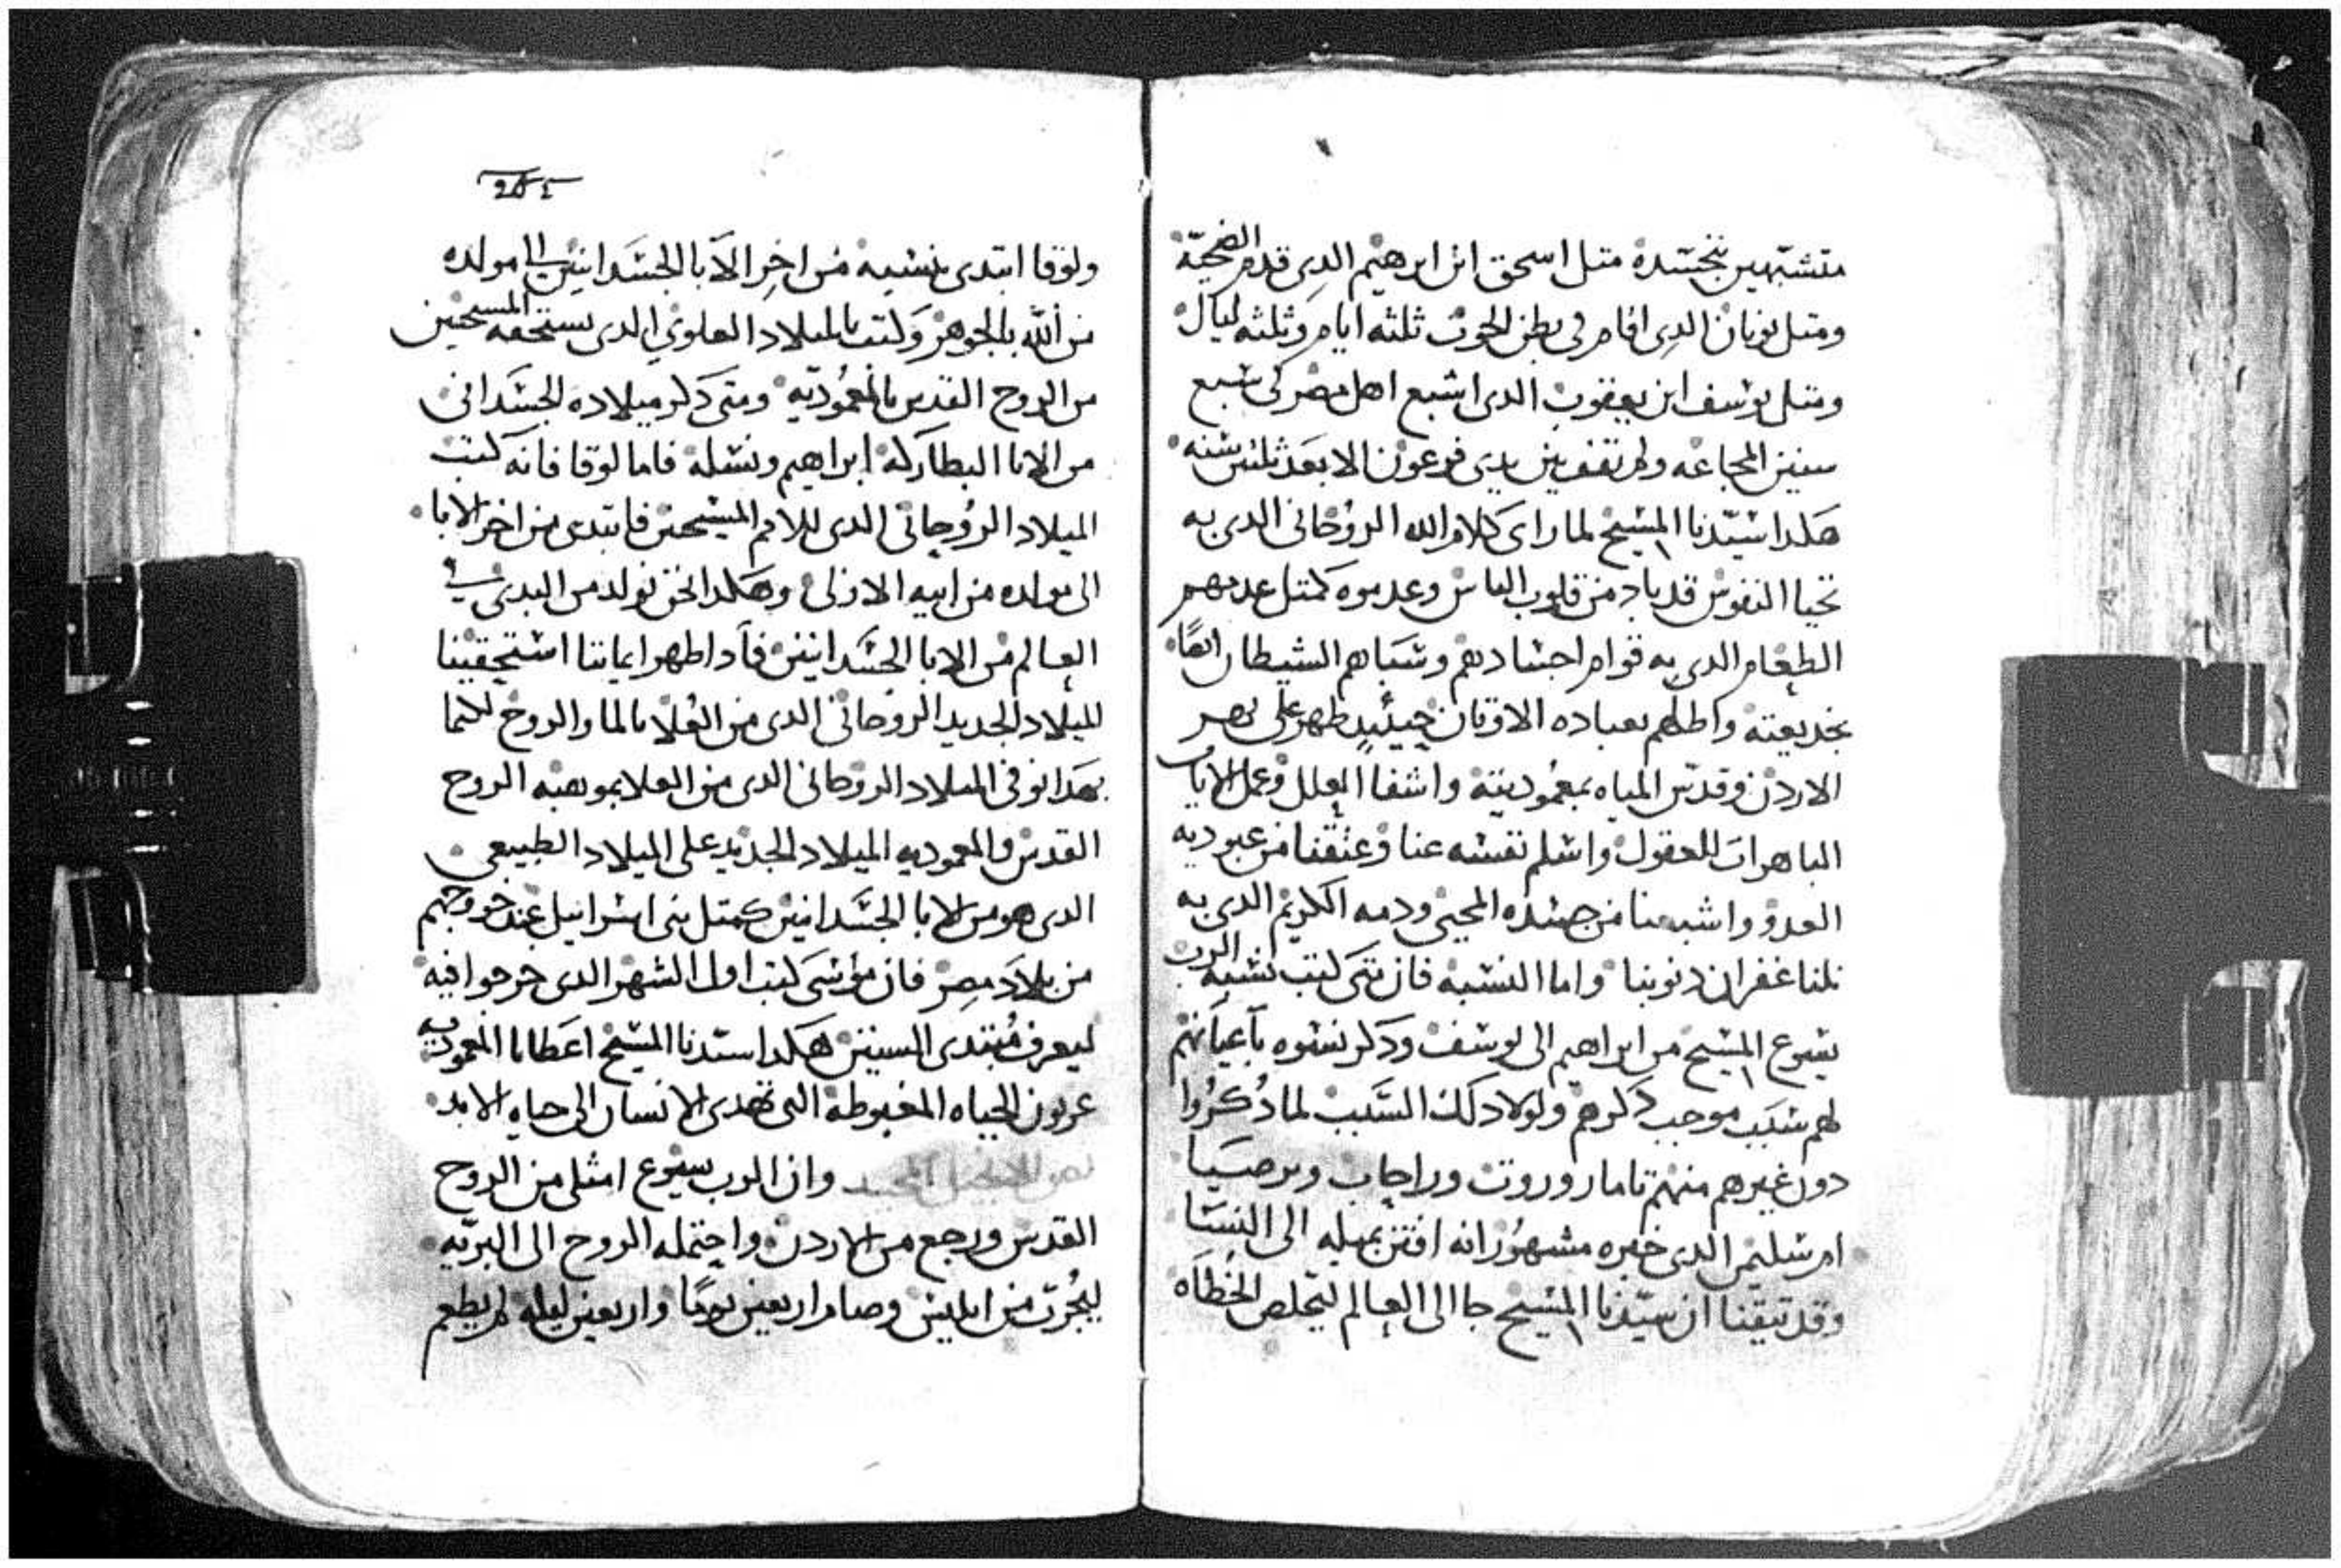 متشبهين بتجسده مثل اسحق ابن ابرهيم الدى قدم الضحيّة
ومثل يونان الدى اقام فى بطن الحوت ثلثه ايام وثلثه ليال
ومثل يوسف ابن يعقوب الدى اشبع اهل مصر فى سبع
سنين المجاعه ولم تقف بين يدى فرعون الا بعد ثلثين سنه
هكدا سيّدنا المسيح لما راى كلام الله الروحانى الدى به
تحيا النفوس قد باد من قلوب الناس وعدموه كمثل عدمهم
الطعام الدى به قوام اجسادهم وسباهم الشيطان ايضًا
بخديعته واطلهم بعباده الاوثان حينيدٍ ظهر على نهر
الاردن وقدّس المياه بمعموديته واشفا العلل وعمل الايات
الباهرات للعقول واسلم نفسه عنا وعتقنا من عبوديه
العدو واشبعنا من جسده المحيى ودمه الكريم الدى به
نلنا غفران دنوبنا واما النسبه فان متى كتب نسبه الرب
يسوع المسيح من ابراهيم الى يوسف ودكر نسوه باعيانهم
لهم سبب موجب دكرهم ولولا دلك السَّبب لما دُكروا
دون غيرهم منهم تامار وروت وراحاب وبرصبا
ام سليمن الدى خبره مشهور انه افتتن بميله الى النسا
وقد تيقنا ان سيّدنا المسيح جا الى العالم ليخلص الخطاه
ولوقا ابتدى بنسبه من اخر الابا الجسدانيين الى مولده
من الله بالجوهر وكتب بالميلاد العلوي الدى يستحقه المسيحيين
من الروح القدس بالمعموديّه ومتى دكر ميلاده الجسدانى
من الابا البطاركه ابراهيم ونسله فاما لوقا فانه كتب
الميلاد الروحانى الدى للامم المسيحين فابتدى من اخر الابا
الى مولده من ابيه الازلى وهكدا نحن نولد من البدى فى
العالم من الابا الجسدانيين فادا ظهر ايماننا استحقينا
للميلاد الجديد الروحانى الدى من العلا بالما والروح لكيما
بهدا نوفى الميلاد الروحانى الدى من العلا بموهبه الروح
القدس والمعموديه الميلاد الجديد على الميلاد الطبيعى
الدى هو من الابا الجسدانيين كمثل بنى اسراييل عند خروجهم
من بلاد مصر فان موسى كتب اول الشهر الدى خرجوا فيه
ليعرف مبتدى السنين هكدا سيدنا المسيح اعطانا المعموديه
عربون الحياه المغبوطه التى تهدى الانسان الى حياه الابد
نص الانجيل المجيد وان الرب يسوع امتلى من الروح
القدس ورجع من الاردن واحتمله الروح الى البريّه
ليُجرّب من ابليس وصام اربعين يومًا واربعين ليله لم يطعم